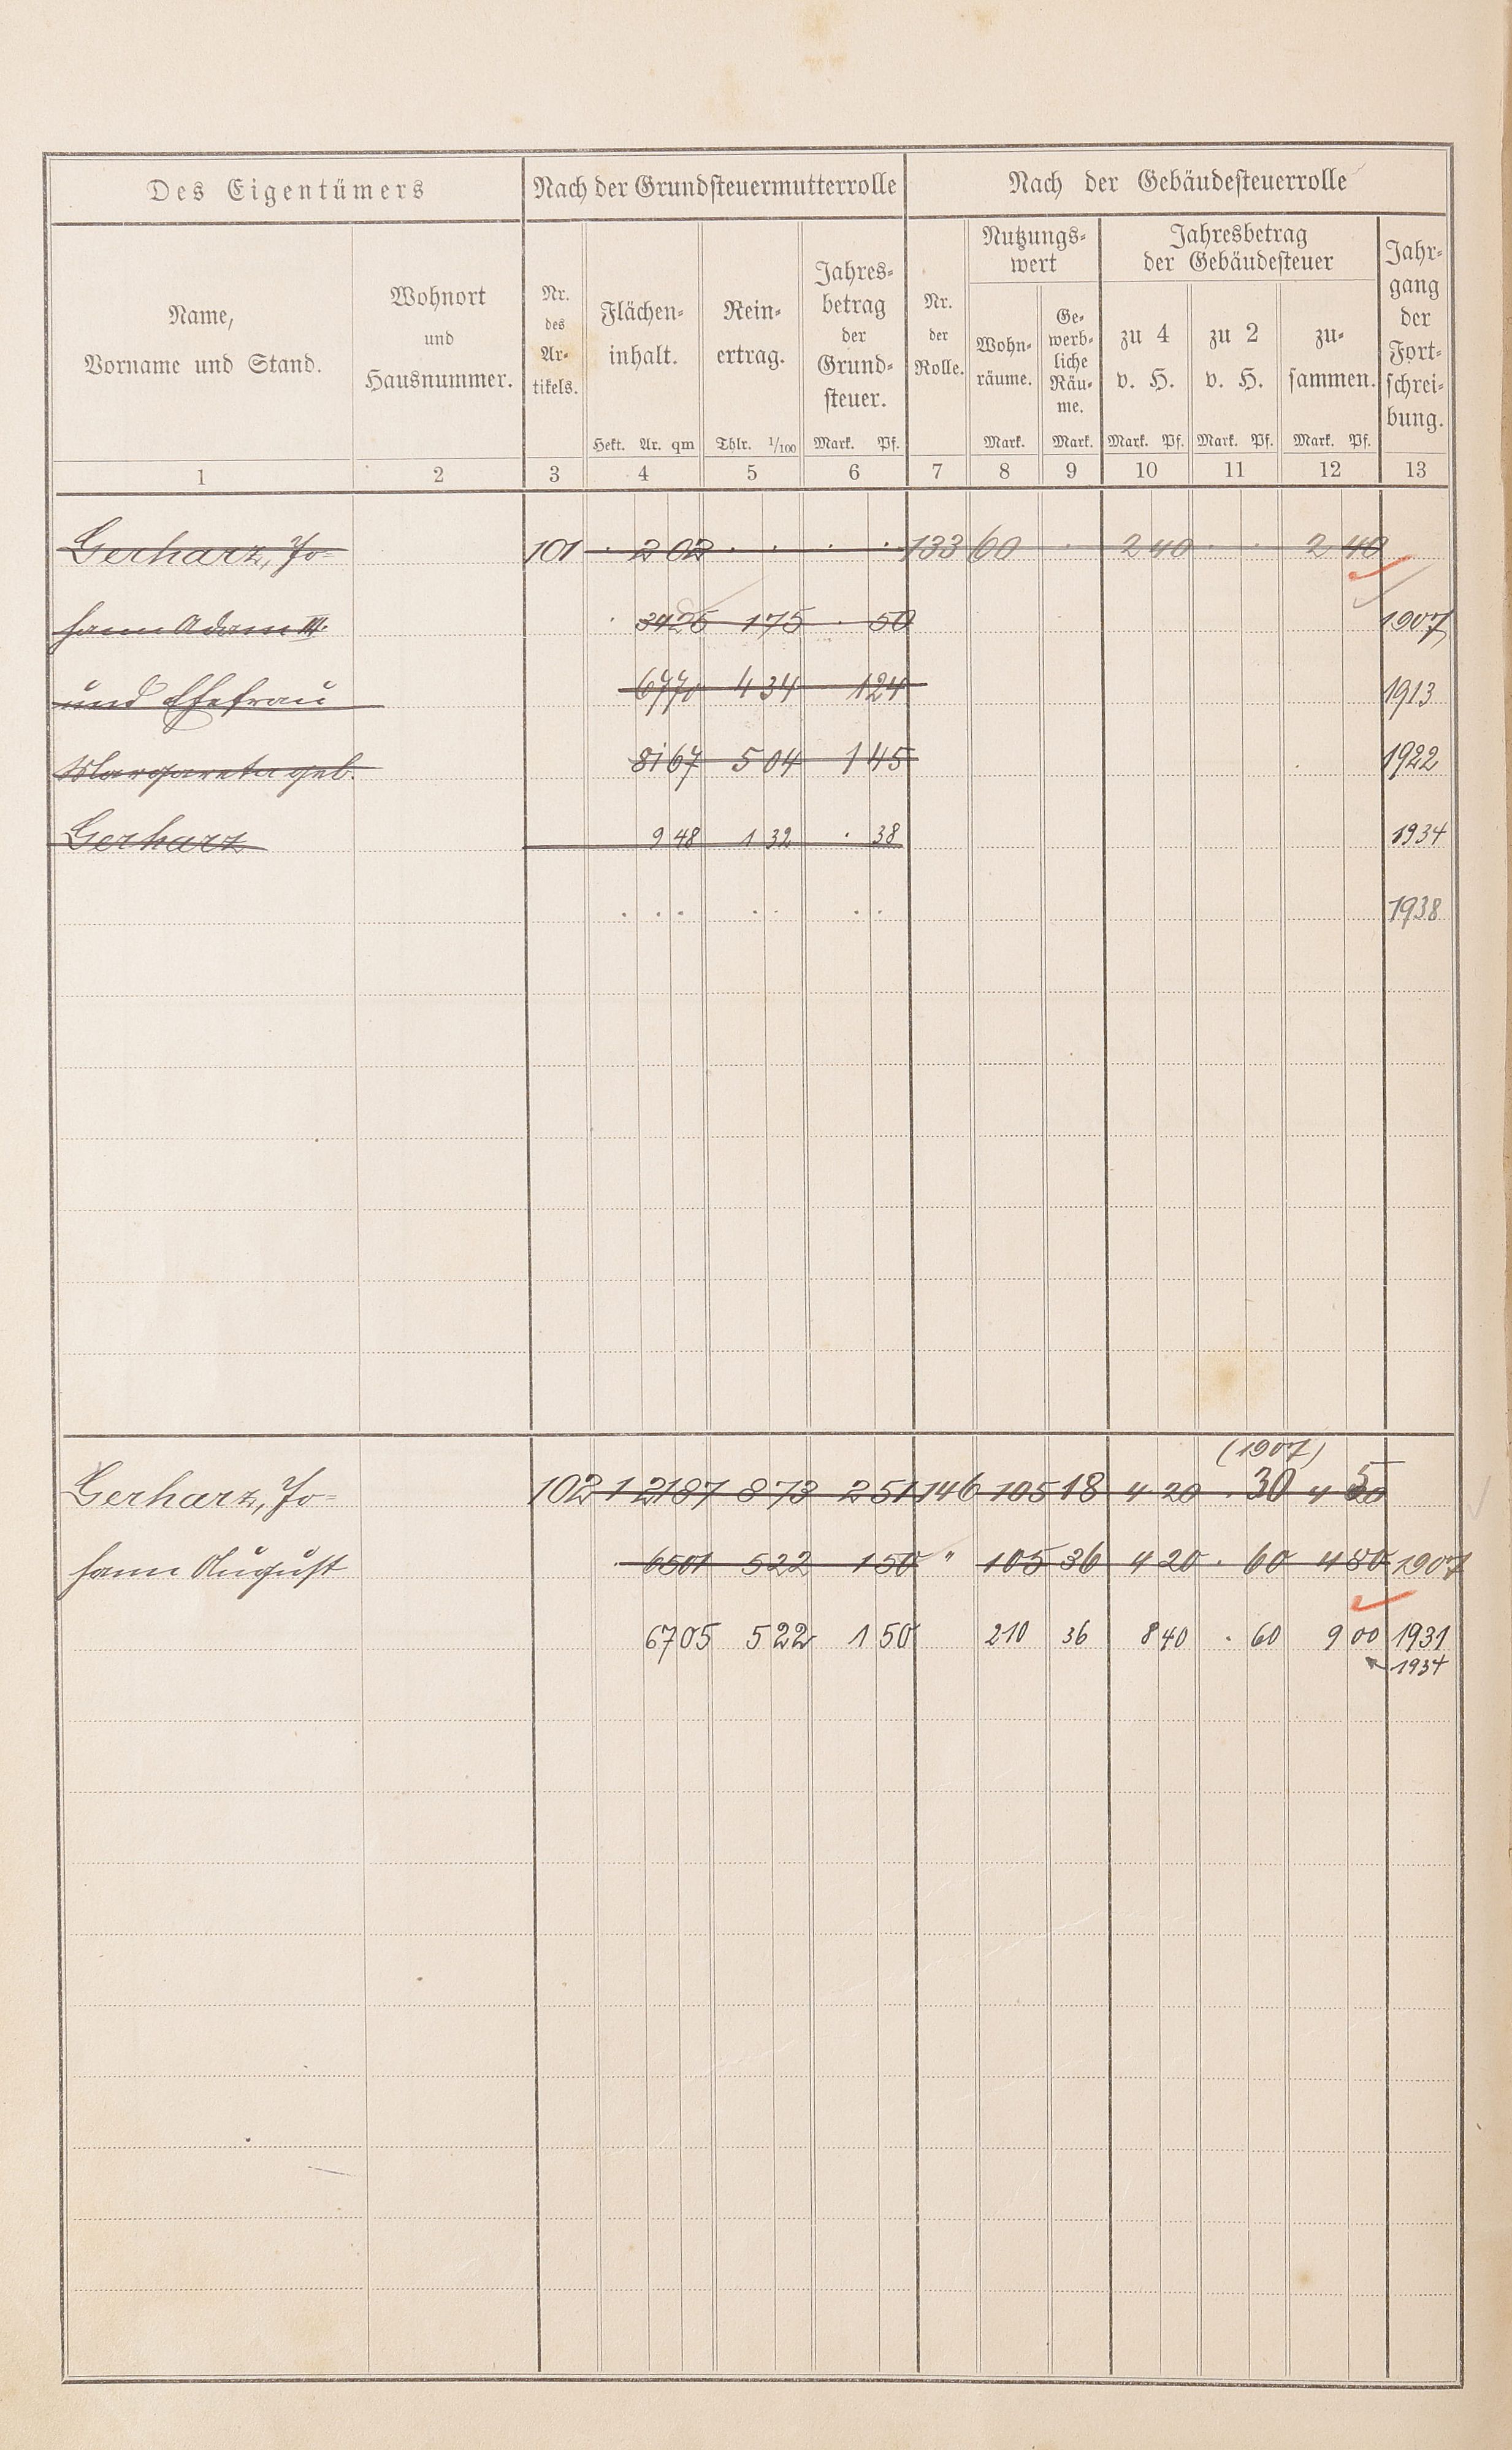 Des Eigentümers Nach der Grundsteuermutterrolle Nach der Gebäudesteuerrolle
Name, Vorname und Stand.
Wohnort und Hausnummer.
Nr. des Ar-tikels.
Flächen-inhalt. Hekt. Ar. qm
Rein-ertrag. Thlr. 1/100
Jahres-betrag der Grund-steuer. Mark. Pf.
Nr. der Rolle.
Nutzungs-wert
Wohn-räume. Mark.
Ge-werb-liche Räu-me. Mark.
Jahresbetrag der Gebäudesteuer
zu 4 v. H. Mark. Pf.
zu 2 v. H. Mark. Pf.
zu-sammen. Mark. Pf.
Jahr-gang der Fort-schrei-bung.
1 2 3 4 5 6 7 8 9 10 11 12 13
Gerharz, Jo= 101 · 2 02 · · · · 133 60 · 2 40 · · 2 40
hann Adam III. · 34 26 1 75 · 50 1907
und Ehefrau 67 70 4 34 1 24 1913
Margareta geb. 81 67 5 04 1 45 1922
Gerharz 9 48 1 32 · 38 1934
· · · · · · · 1938
(1907)
Gerharz, Jo= 102 1 21 87 8 73 2 51 146 105 18 4 20 · 30 4 50
hann August · 65 01 5 22 1 50 " 105 36 4 20 · 60 4 80 1907
67 05 5 22 1 50 210 36 8 40 · 60 9 00 1931
1934